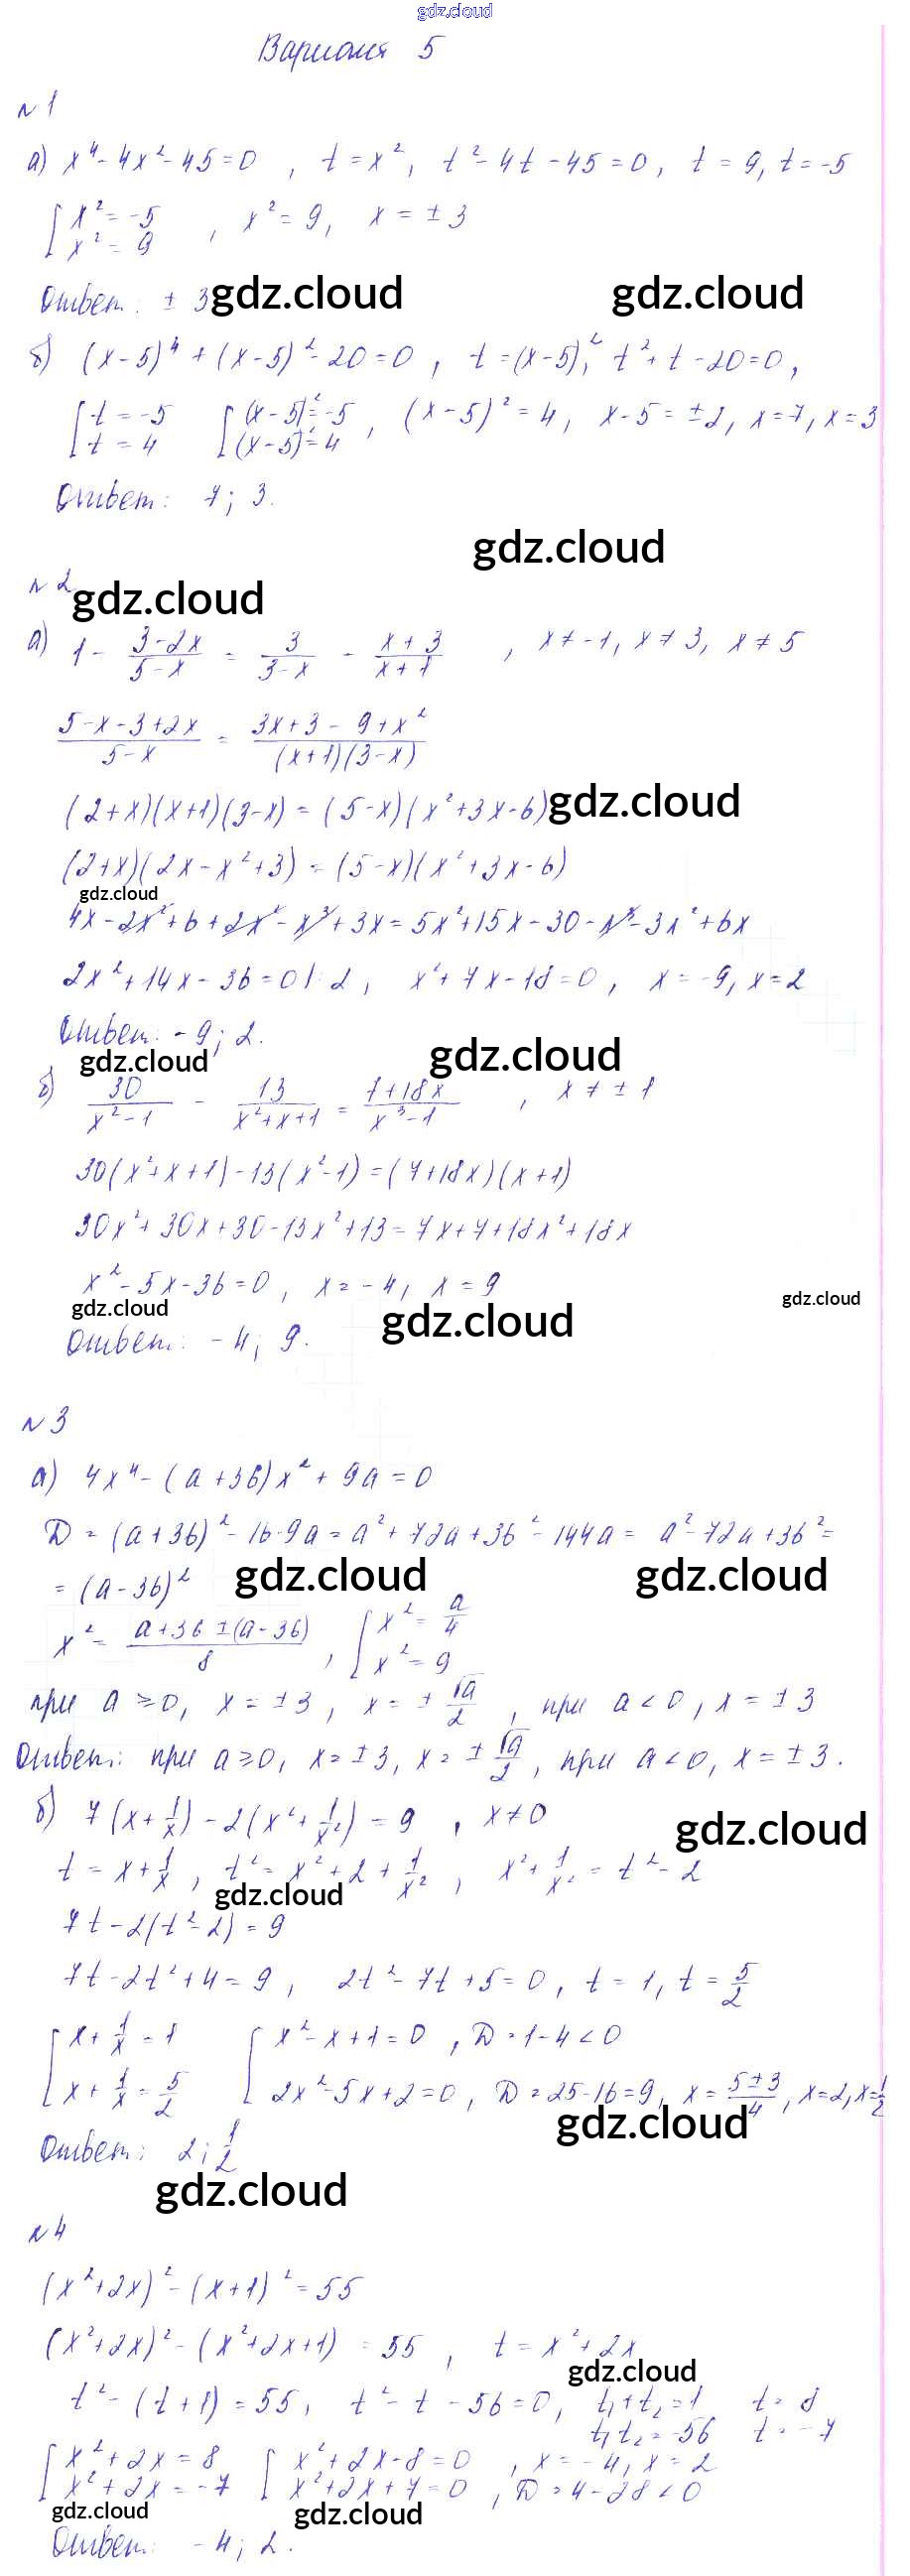 gdz.cloud
Вариант 5
№ 1
а) x⁴ - 4x² - 45 = 0 , t = x², t² - 4t - 45 = 0, t = 9, t = -5
[ x² = -5
x² = 9 , x² = 9, x = ± 3
Ответ: ± 3 gdz.cloud gdz.cloud
б) (x-5)⁴ + (x-5)² - 20 = 0 , t = (x-5)², t² + t - 20 = 0,
[ t = -5 [ (x-5)² = -5
t = 4 (x-5)² = 4 , (x-5)² = 4, x-5 = ±2, x=7, x=3
Ответ: 7; 3.
gdz.cloud
№ 2
gdz.cloud
а) 1 - (3-2x)/(5-x) = 3/(3-x) - (x+3)/(x+1) , x ≠ -1, x ≠ 3, x ≠ 5
(5-x-3+2x)/(5-x) = (3x+3-9+x²)/((x+1)(3-x))
(2+x)(x+1)(3-x) = (5-x)(x²+3x-6) gdz.cloud
(2+x)(2x-x²+3) = (5-x)(x²+3x-6)
gdz.cloud
4x-2x²+6+2x²-x³+3x = 5x²+15x-30-x³-3x²+6x
2x²+14x-36=0 |:2 , x²+7x-18=0 , x=-9, x=2
Ответ: -9; 2.
gdz.cloud gdz.cloud
б) 30/(x²-1) - 13/(x²+x+1) = (7+18x)/(x³-1) , x ≠ ± 1
30(x²+x+1)-13(x²-1)=(7+18x)(x+1)
30x²+30x+30-13x²+13=7x+7+18x²+18x
x²-5x-36=0 , x=-4, x=9
gdz.cloud gdz.cloud gdz.cloud
Ответ: -4; 9.
№ 3
а) 4x⁴ - (a+36)x² + 9a = 0
D = (a+36)² - 16·9a = a²+72a+36²-144a = a²-72a+36² =
= (a-36)² gdz.cloud gdz.cloud
x² = (a+36±(a-36))/8 , [ x² = a/4
x² = 9
при a ≥ 0, x = ±3, x = ± √a/2 , при a < 0, x = ± 3
Ответ: при a ≥ 0, x = ±3, x = ± √a/2 , при a < 0, x = ± 3.
б) 7(x+1/x) - 2(x²+1/x²) = 9 , x ≠ 0 gdz.cloud
t = x+1/x , t² = x²+2+1/x² , x²+1/x² = t²-2
gdz.cloud
7t-2(t²-2) = 9
7t-2t²+4=9 , 2t²-7t+5=0, t=1, t=5/2
[ x+1/x=1 [ x²-x+1=0 , D=1-4<0
x+1/x=5/2 2x²-5x+2=0, D=25-16=9, x=(5±3)/4, x=2, x=1/2
gdz.cloud
Ответ: 2; 1/2
gdz.cloud
№ 4
(x²+2x)²-(x+1)²=55
(x²+2x)²-(x²+2x+1) = 55 , t=x²+2x
gdz.cloud
t²-(t+1)=55, t²-t-56=0, t₁+t₂=1 t=8
t₁t₂=-56 t=-7
[ x²+2x=8 [ x²+2x-8=0 , x=-4, x=2
x²+2x=-7 x²+2x+7=0 , D=4-28<0
gdz.cloud gdz.cloud
Ответ: -4; 2.